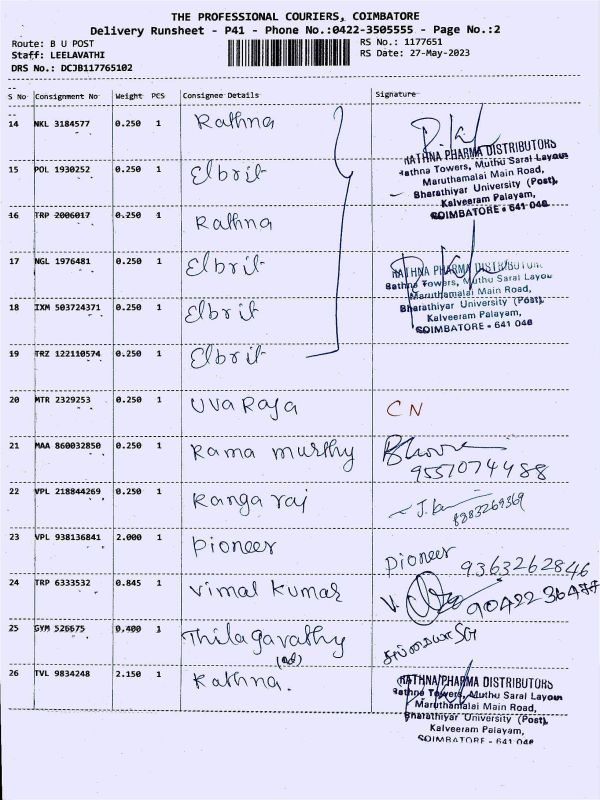 THE PROFESSIONAL COURIERS, COIMBATORE
Delivery Runsheet - P41 - Phone No.:0422-3505555 - Page No.:2
Route: B U POST
RS No.: 1177651
Staff: LEELAVATHI
RS Date: 27-May-2023
DRS No.: DCJB117765102
S No Consignment No Weight PCS Consignee Details Signature
14 NKL 3184577 0.250 1 Rathna
RATHNA PHARMA DISTRIBUTORS
Rathna Towers, Muthu Sarai Layout
Maruthamalai Main Road,
15 POL 1930252 0.250 1 Elbrit
Bharathiyar University (Post),
Kalveeram Palayam,
COIMBATORE - 641 046
16 TRP 2006017 0.250 1 Rathna
17 NGL 1976481 0.250 1 Elbrit
RATHNA PHARMA DISTRIBUTORS
Rathna Towers, Muthu Sarai Layout
Maruthamalai Main Road,
18 IXM 503724371 0.250 1 Elbrit
Bharathiyar University (Post),
Kalveeram Palayam,
COIMBATORE - 641 046
19 TRZ 122110574 0.250 1 Elbrit
20 MTR 2329253 0.250 1 Uva Raja CN
21 MAA 860032850 0.250 1 Rama murthy
22 VPL 218844269 0.250 1 Ranga raj
8883269369
23 VPL 938136841 2.000 1 Pioneer Pioneer 9363262846
24 TRP 6333532 0.845 1 Vimal Kumar
25 GYM 526675 0.400 1 Thilagavathy
26 TVL 9834248 2.150 1 Rathna.
RATHNA PHARMA DISTRIBUTORS
Rathna Towers, Muthu Sarai Layout
Maruthamalai Main Road,
Bharathiyar University (Post),
Kalveeram Palayam,
COIMBATORE - 641 046